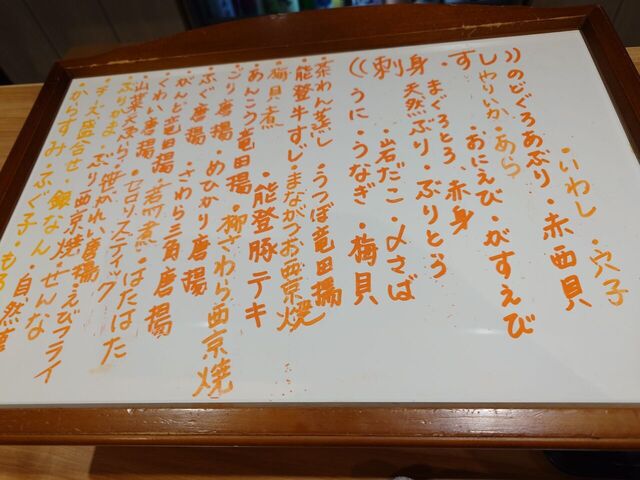 ((刺身・すし))
・いわし・穴子
のどぐろあぶり・赤西貝
やりいか・あら
・おにえび・がすえび
まぐろとろ、赤身
天然ぶり・ぶりとう
・岩だこ・〆さば
うに・うなぎ・梅貝
茶わん蒸し・うつぼ竜田揚
能登牛すじ・まながつお西京焼
梅貝煮・能登豚テキ
あんこう竜田揚・柳さわら西京焼
ごり唐揚・めひかり唐揚
ふぐ唐揚・さわら三角唐揚
がんど竜田揚
かれい唐揚・はたはた
山菜天ぷら・セロリスティック
ぶりかま・笹がれい唐揚・えびフライ
・ぶり西京焼・せんな
盛合せ・銀なん・自然
からすみ・ふぐ子・も